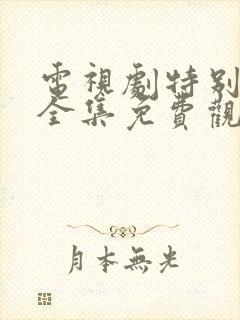 電視劇特別
全集免費觀
月本無光